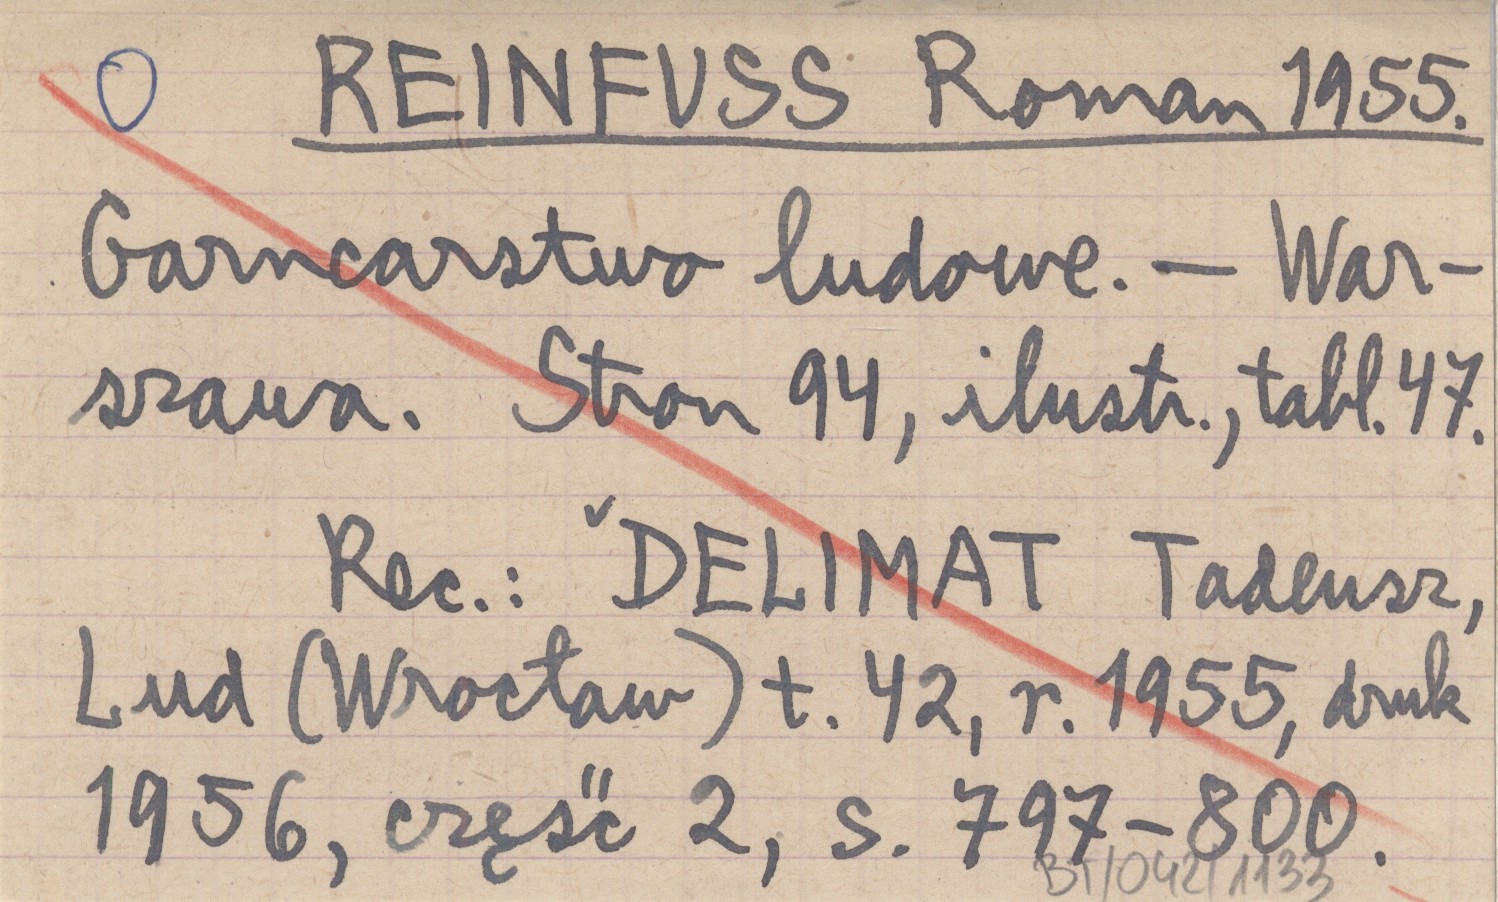 O REINFUSS Roman 1955.
Garncarstwo ludowe. — War-
szawa. Stron 94, ilustr., tabl. 47.
Rec.: ˇDELIMAT Tadeusz,
Lud (Wrocław) t. 42, r. 1955, druk
1956, część 2, s. 797-800.
BT/042/1133